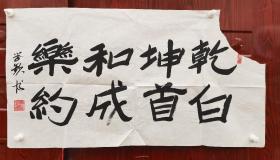 乾坤和樂
白首成約